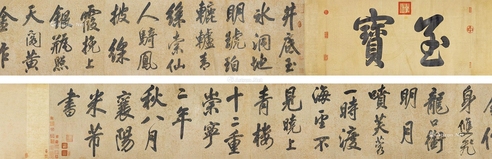 至寶
井底玉
冰洞地
明琥珀
轆轤青
絲索仙
人騎鳳
披綵
霞挽上
銀瓶照
天閣黄
金作
身雙飛
龍口銜
明月
噴芙蓉
一時渡
海不
見曉上
青樓
十二重
崇寧
二年
秋八月
襄陽
米芾
書